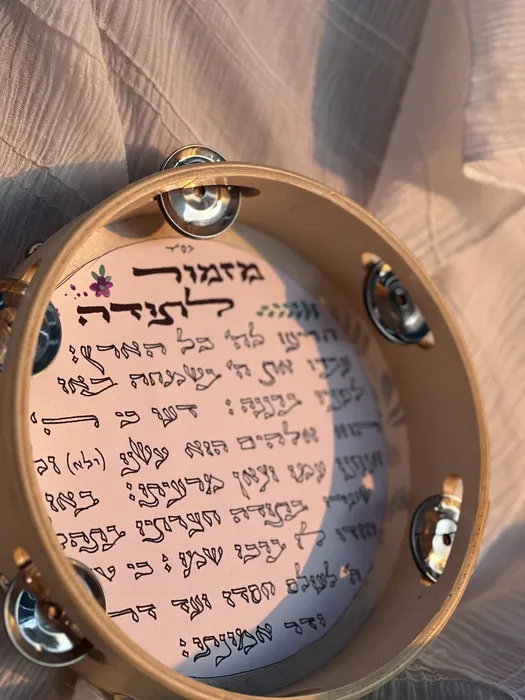 בס"ד
מזמור
לתודה
הריעו לה' כל הארץ:
עבדו את ה' בשמחה באו
לפניו ברננה: דעו כי
אלהים הוא עשנו (ולא)
אנחנו עמו וצאן מרעיתו: באו
שעריו בתודה חצרתיו
הודו לו ברכו שמו: כי
ה' לעולם חסדו ועד דר
ודר אמונתו: